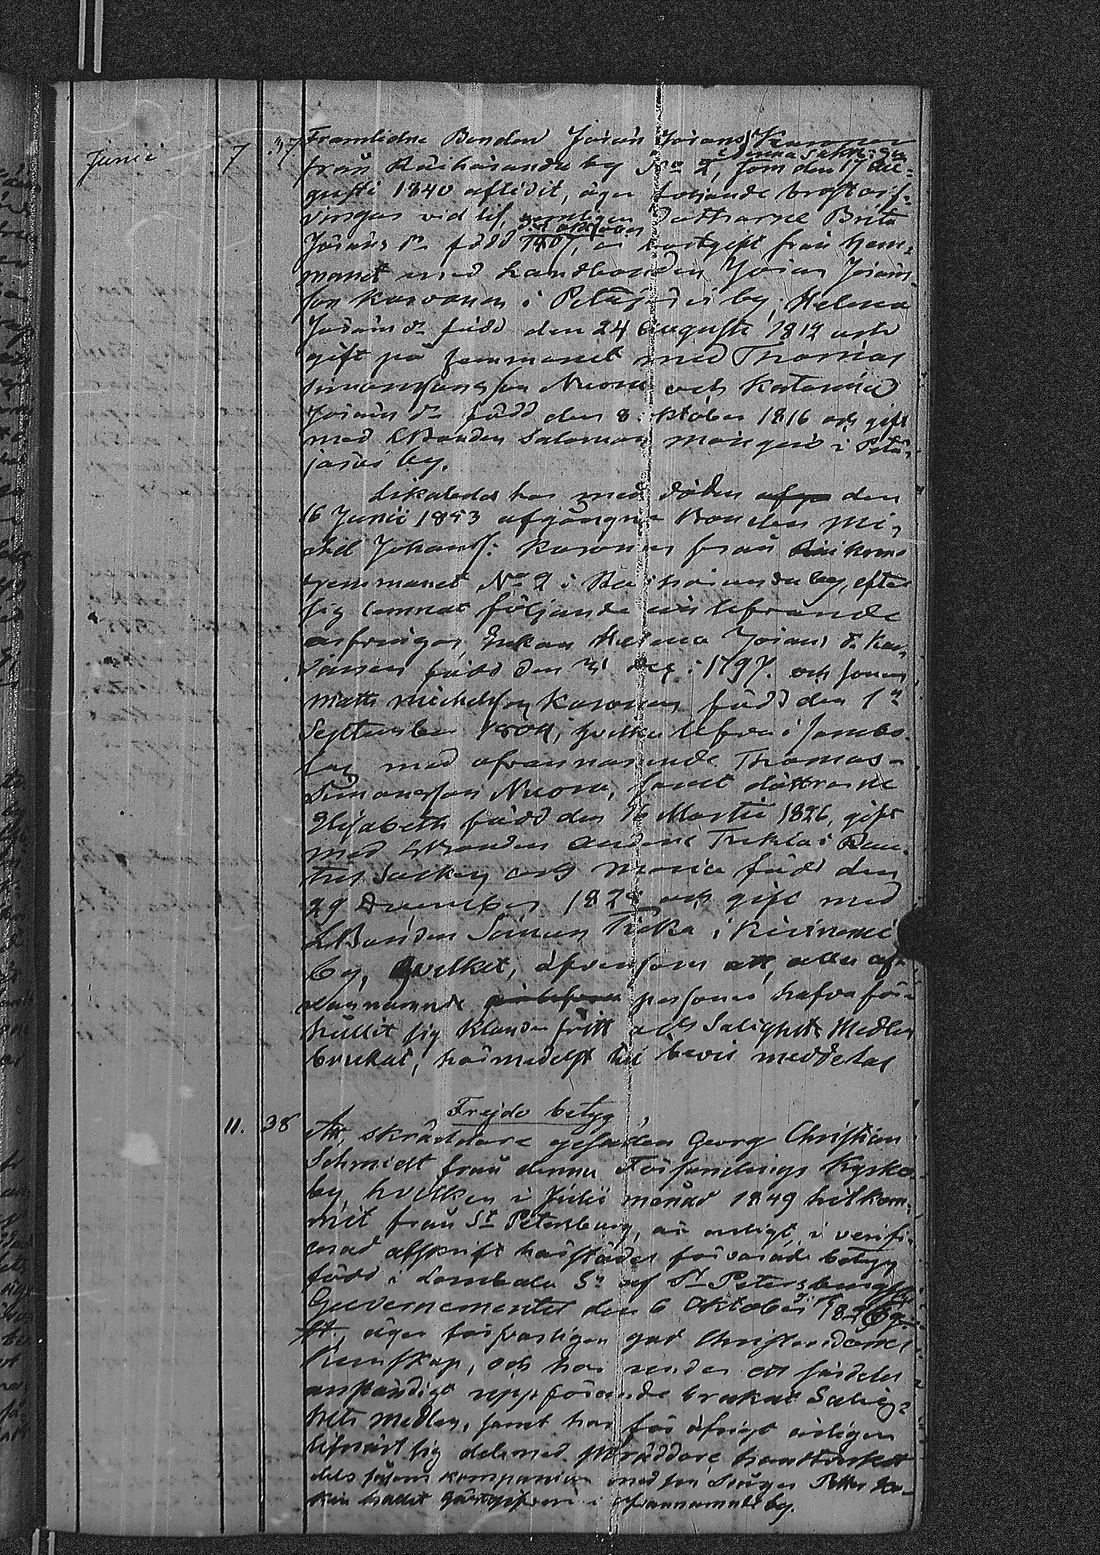 Junii 7 37 Framledne Bonden Jöran Jöranss: Karonen
från Räihäranda by No 2, som den 17 Au-
gusti 1840 aflidit, äger följande bröstarf-
vingar vid lif, nemligen Döttrarne Brita
Jörans dr född 1807, är bortgift från hem-
manet med Landbonden Jöran Jörans-
son Karvanen i Petäjärvi by, Helena
Jörans dr född den 24 Augusti 1812 och
gift på hemmanet med Thomas
Simonsson Nuora och Katarina
Jörans dr född den 8 Oktober 1816 och gift
med LBonden Salomon i Petä-
järvi by.
Likaledes har med döden den
16 Junii 1853 afgångne Bonden Mi-
chel Johanss: Karonen från
hemmanet No 2 i by, efter
sig lemnat följande ännu lefvande
arfvingar, Enkan Helena Jörans dr Kar-
vanen född den 31 Dec: 1797 och Sonen
Matts Michelsson Karonen född den 1a
September, hvilka lefva i sambo-
lag med ofvannämnde Thomas
Simonsson Nuora, samt döttrarne
Elisabeth född den 16 Martii 1826, gift
med LBonden Anders i Rau-
tus Socken och Maria född den
29 December 1828 och gift med
LBonden Simon i Kiviniemi
by, hvilket, äfvensom att alla of-
vannämnde personer hafva för-
hållit sig klanderfritt och Salighets Medlen
brukat, härmedelst till bevis meddelas
Frejde betyg
11. 38 Att, skräddare gesällen Georg Christian
Schmidt från denna Församlings Kyrko-
by hvilken i Julii månad 1849 hitkom-
mit från St Petersburg, är enligt i verifi-
cerad afskrift härstädes förvarade betyg
född i Lembala Sn af St Petersburgska
Guvernementet den 6 Oktober
äger försvarligen god Christendoms
kunskap, och har under ett särdeles
anständigt uppförande brukat Salig-
hets medlen, samt har för öfrigt ärligen
lifnärt sig dels med skräddare handtverket
dels såsom kompanion med Petter
kin hållit Gästgifveri i ofvannämnde by.